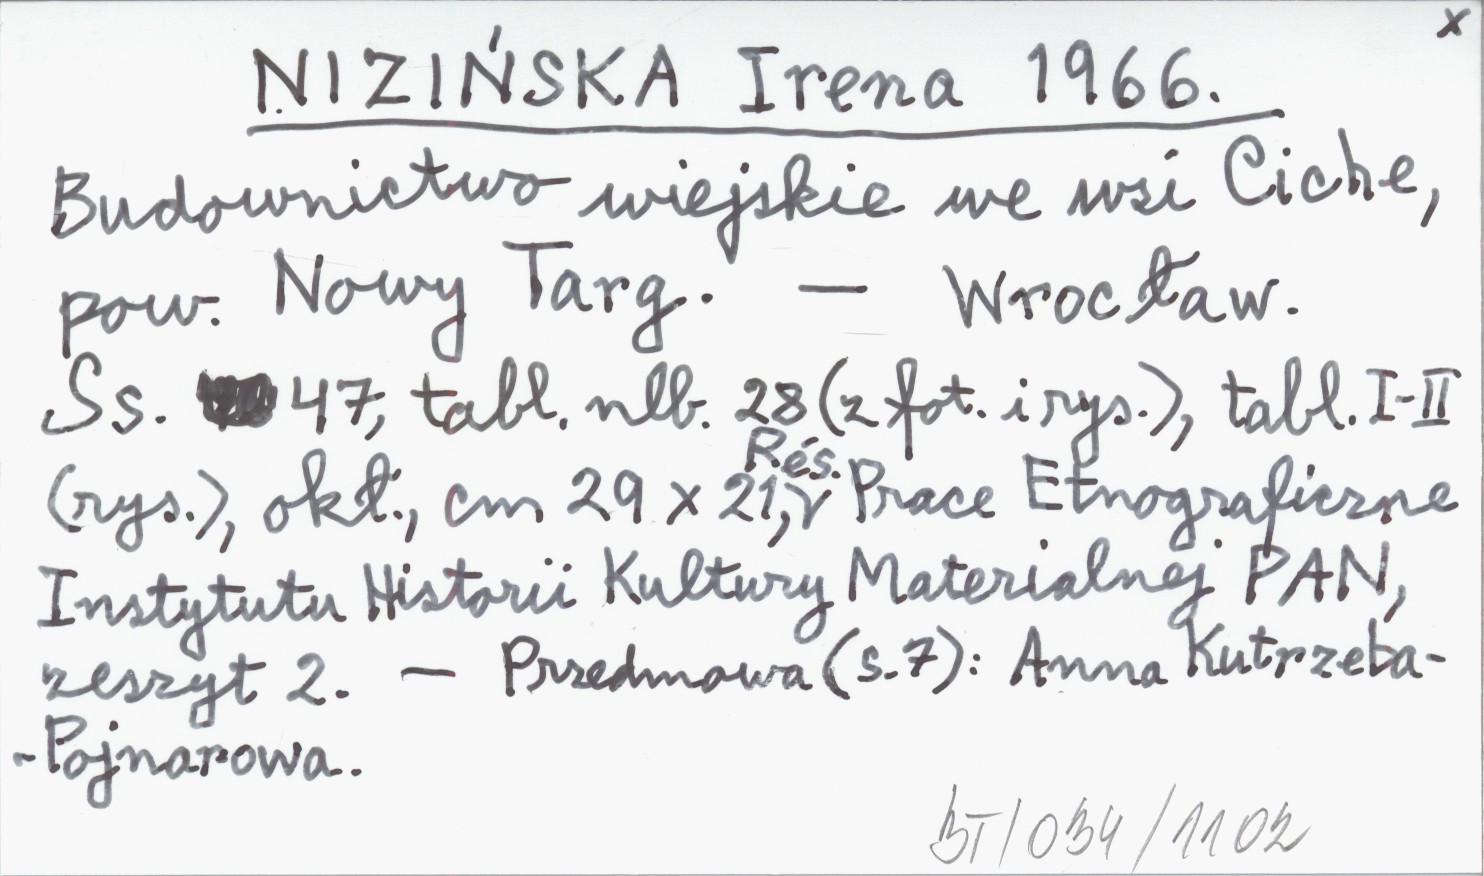 x
NIZIŃSKA Irena 1966.
Budownictwo wiejskie we wsi Ciche,
pow. Nowy Targ. — Wrocław.
Ss. 47, tabl. nlb. 28 (z fot. i rys.), tabl. I-II
Rés.
(rys.), okł., cm 29 x 21, Prace Etnograficzne
Instytutu Historii Kultury Materialnej PAN,
zeszyt 2. — Przedmowa (s. 7): Anna Kutrzeba-
-Pojnarowa.
BT/034/1102